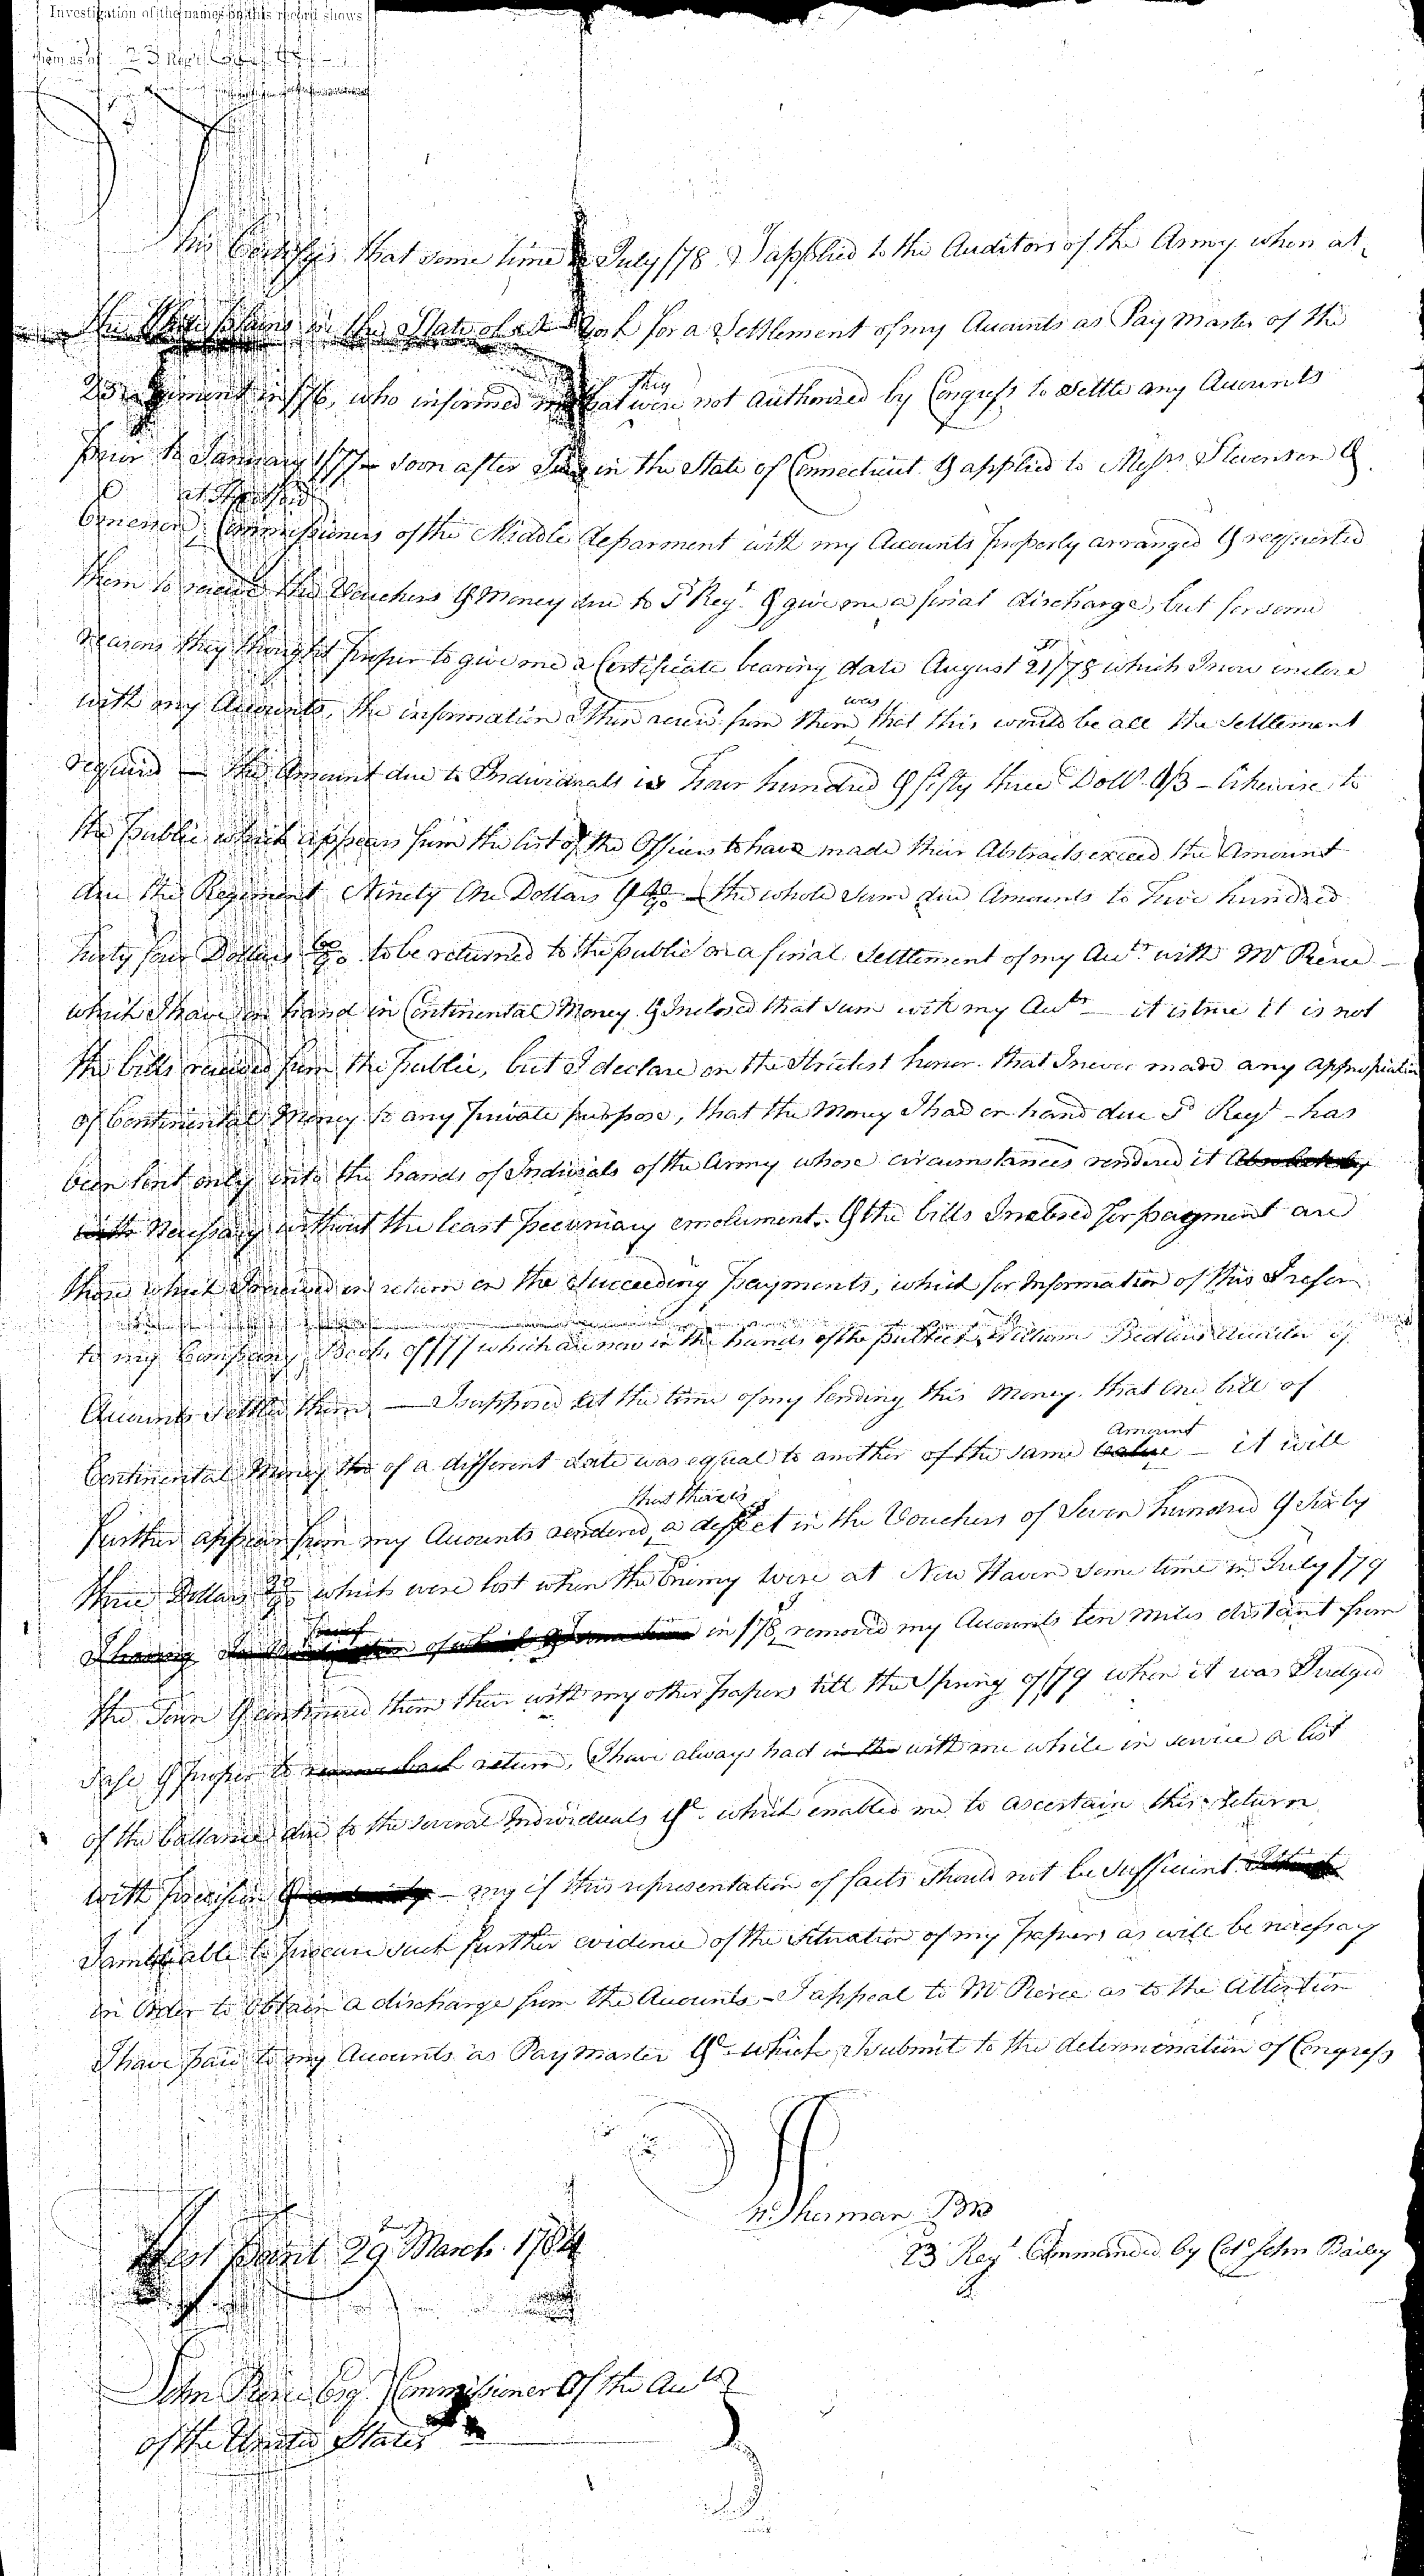 Investigation of the names on this record shows
them as of 23 Regt
This Certifys that some time in July 1778 I applied to the Auditors of the Army when at
the White plains in the State of New York for a Settlement of my Accounts as Pay Master of the
23 Regiment in 1776, who informed me that they were not Authorised by Congress to settle any Accounts
prior to January 1777 — soon after I was in the State of Connecticut & applied to Messrs Stevenson &
at Hartford
Commissioners of the Middle deparment with my Accounts properly arranged & requested
them to receive the Vouchers & Money due to Sd Regt & give me a final discharge, but for some
reasons they thought proper to give me a Certificate bearing date August 21st/78 which I now inclose
with my Accounts, the information I then receivd from them was that this would be all the settlement
required — the Amount due to Individuals is four hundred & fifty three Dollrs 1/3 – likewise to
the public which appears from the list of the Officers to have made their Abstracts exceed the Amount
due the Regiment Ninety One Dollars & — the whole sum due Amounts to five hundred
forty four Dollars to be returned to the public on a final Settlement of my Accts with Mr Pierce —
which I have on hand in Continental Money & Inclosed that sum with my Accts — it is true it is not
the bills received from the public, but I declare on the strictest honor that I never made any appropriation
of Continental Money to any private purpose, that the Money I had on hand due Sd Regt – has
been lent only into the hands of Indivials of the Army whose circumstances rendered it Absolutely
Necessary without the least pecuniary emolument. & the bills Inclosed for payment are
those which I received in return on the Succeeding payments, which for Information of this I refer
to my Company Books of 1777 which are now in the hands of the public, William Auditor of
Accounts settled them — I supposed at the time of my lending this Money that one bill of
Continental Money tho of a different date was equal to another of the same value Amount – it will
further appear from my Accounts rendered that there is a deffect in the Vouchers of Seven hundred & Sixty
three Dollars which were lost when the Enemy were at New Haven some time in July 1779
I having in 1778 removed my Accounts ten miles distant from
the Town & continued them there with my other papers till the Spring of 1779 when it was Judged
safe & proper to remove back return, I have always had in the with me while in service a list
of the ballances due to the several Individuals &c. which enabled me to ascertain this return
with precision & – my if this representation of facts should not be sufficient
I am able to procure such further evidence of the situation of my papers as will be necessary
in Order to obtain a discharge from the Accounts – I appeal to Mr Pierce as to the Attention
I have paid to my Accounts as Pay Master &c which I submit to the determination of Congress
Sherman PM
23 Regt Commanded by Colo John Bailey
West point 29 March 1784
John Pierce Esqr Commissioner Of the Accts
of the United States